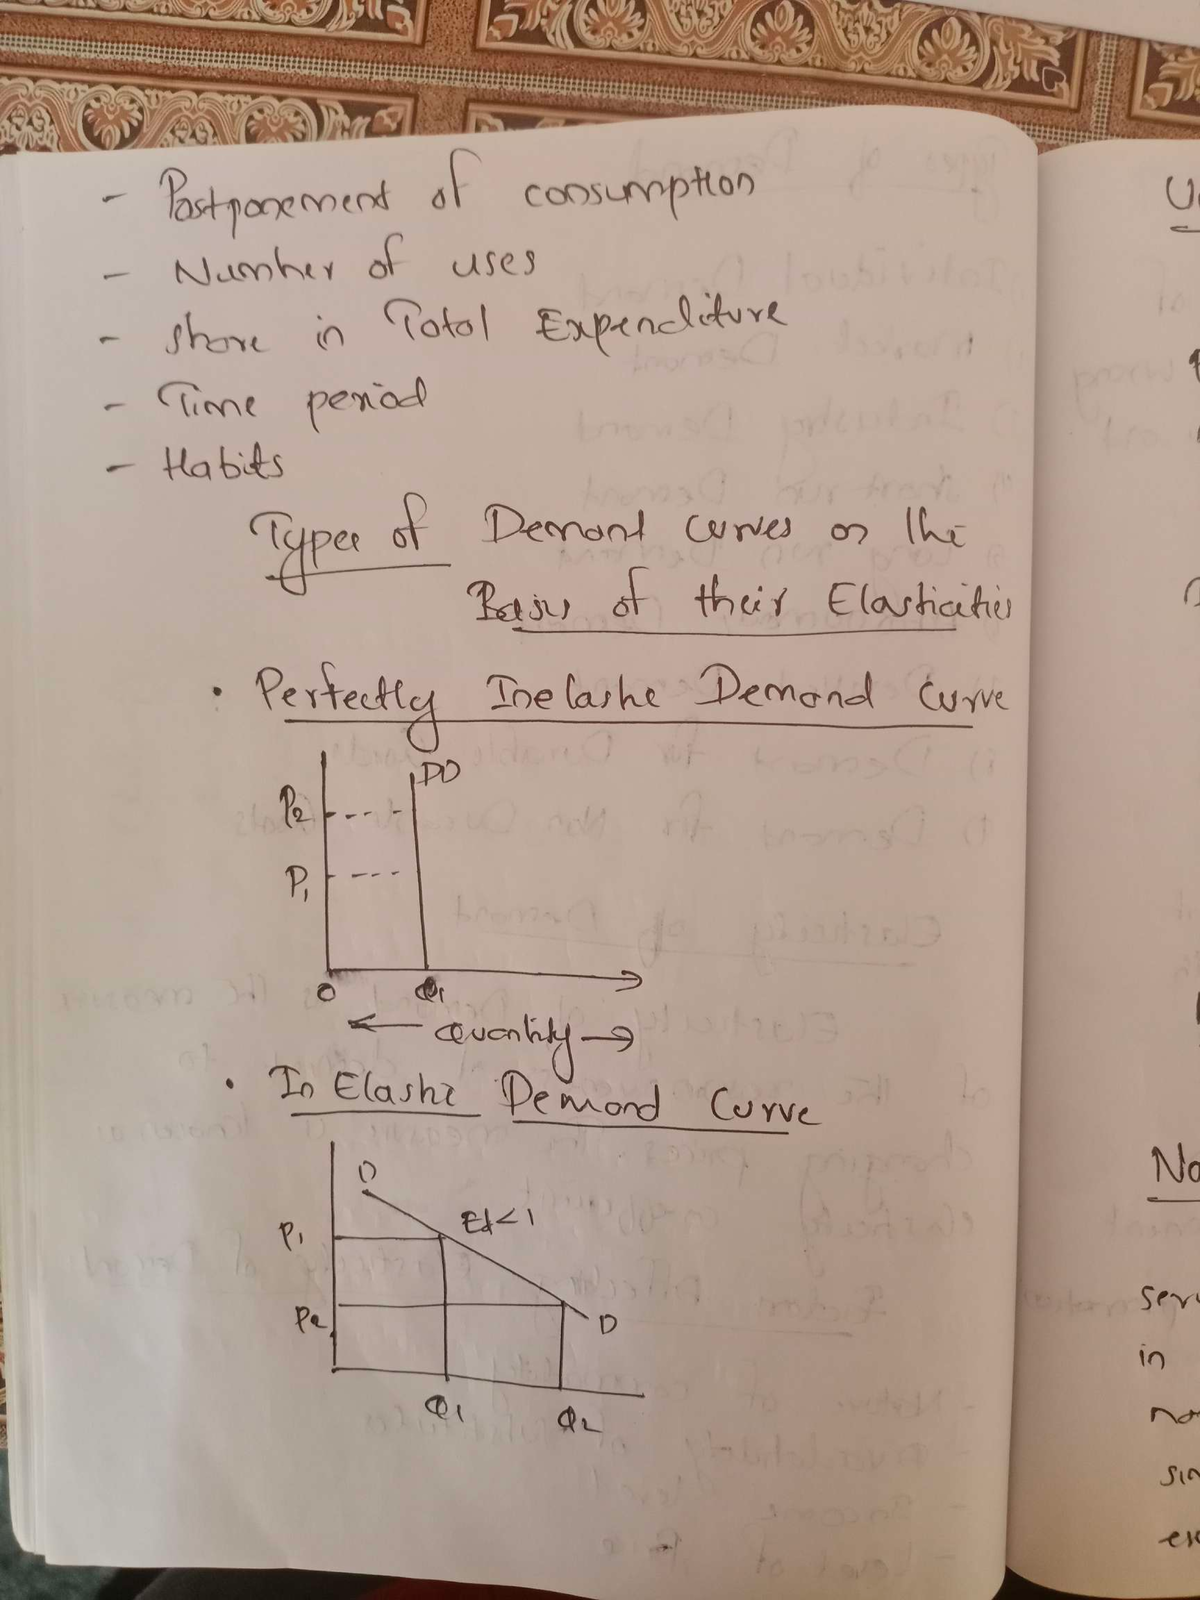 - Postponement of consumption
- Number of uses
- Share in Total Expenditure
- Time period
- Habits
Types of Demant curves on the
Basis of their Elasticities
• Perfectly Inelashe Demand Curve
DD
P2
P1
0 Q1
← Quantity →
• In Elashe Demand Curve
D
Ed<1
P1
P2
D
Q1 Q2
No
serv
in
no
sin